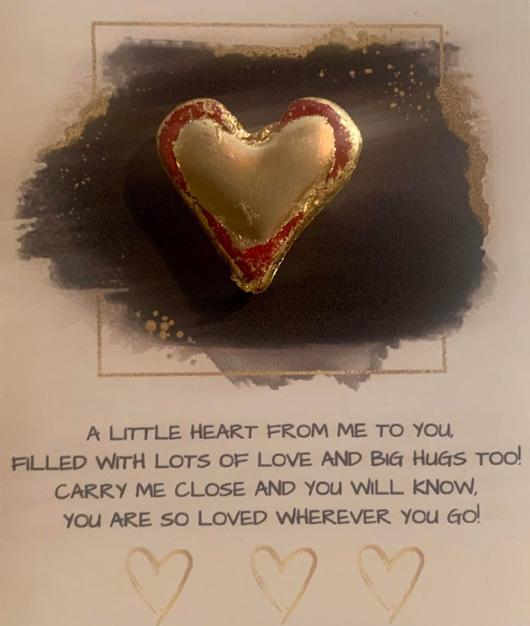 A LITTLE HEART FROM ME TO YOU,
FILLED WITH LOTS OF LOVE AND BIG HUGS TOO!
CARRY ME CLOSE AND YOU WILL KNOW,
YOU ARE SO LOVED WHEREVER YOU GO!